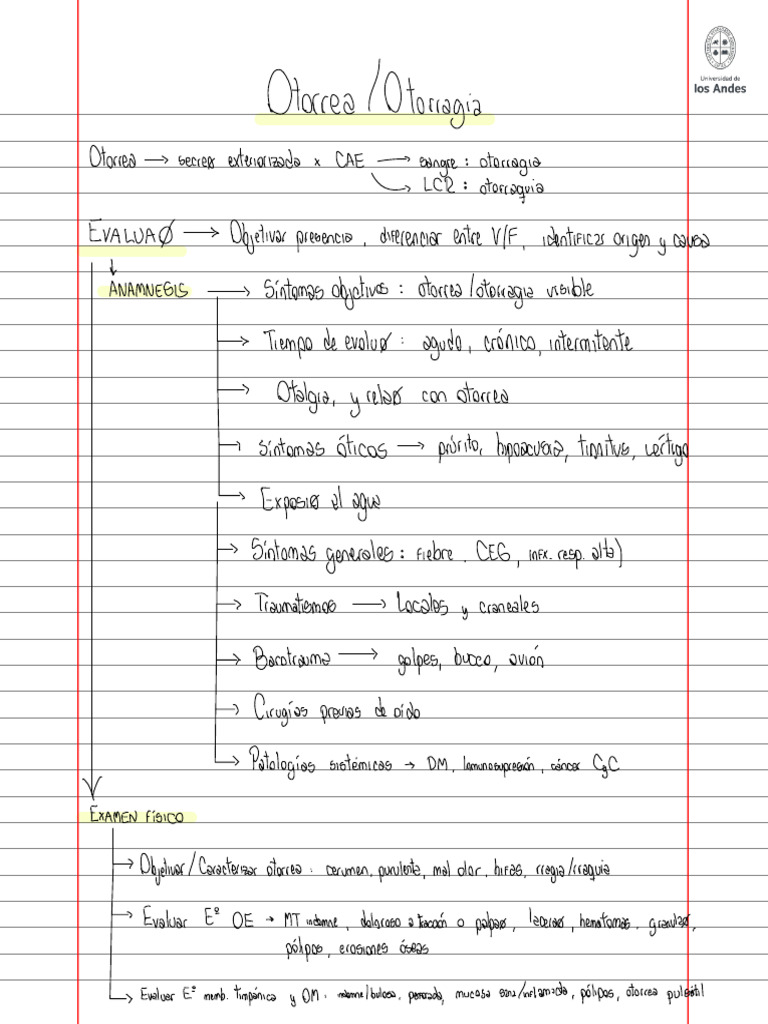 Universidad de
los Andes
Otorrea / Otorragia
Otorrea → secreØ exteriorizada x CAE → sangre : otorragia
→ LCR : otorraquia
EVALUAØ → Objetivar presencia, diferenciar entre V/F, identificar origen y causa
ANAMNESIS → Síntomas objetivos : otorrea/otorragia visible
→ Tiempo de evoluØ : agudo, crónico, intermitente
→ Otalgia, y relaØ con otorrea
→ Síntomas óticos → prúrito, hipoacusia, tinnitus, vértigo
→ ExposiØ al agua
→ Síntomas generales : fiebre. CEG, infx. resp. alta)
→ Traumatismos → Locales y craneales
→ Barotrauma → golpes, buceo, avión
→ Cirugías previas de oído
→ Patologías sistémicas → DM, inmunosupresión, cáncer CyC
EXAMEN FÍSICO
→ Objetivar/Caracterizar otorrea : cerumen, purulenta, mal olor, hifas, rragia/rraquia
→ Evaluar Eº OE → MT indemne, doloroso a tracción o palpaØ, laceraØ, hematomas, granulaØ,
pólipos, erosiones óseas
→ Evaluar Eº memb. timpánica y OM : indemne/bulosa, perforada, mucosa sana/inflamada, pólipos, otorrea pulsátil